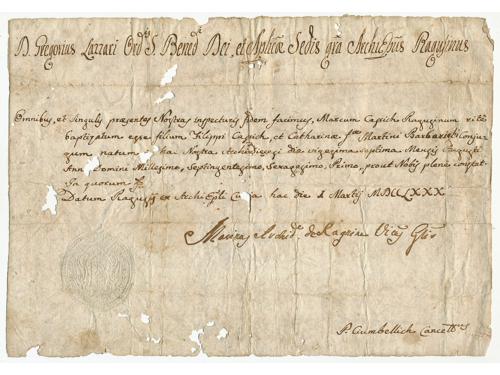 D. Gregorius Lazzari Ord.s S. Bened.i Dei, et Aplicæ Sedis gra Archiepus Ragusinus
Omnibus, et Singulis præsentes Nostras inspecturis fidem facimus, Marcum Cassich Ragusinum rite
baptizatum esse filium Filippi Cassich, et Catharinæ f. Martini
natum in hac Nostra die vigesima Septima Mensis Augusti
Anno Domini Millesimo, Septingentesimo, Sexagesimo, Primo, prout Nobis plene constat.
In quorum &
Datum Ragusij ex Archiepli Curia hac die 1 Martij MDCCLXXX
Marinus de Ragnina Vics Glis
P. Ciumbellich Cancell.s